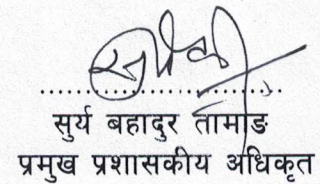 ........................
सुर्य बहादुर तामाङ
प्रमुख प्रशासकीय अधिकृत